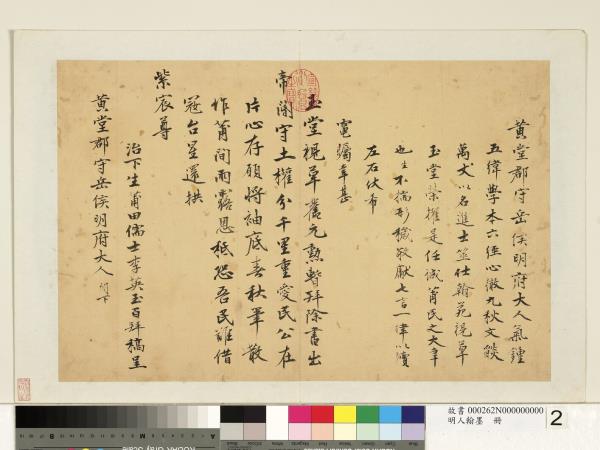 黃堂郡守岳侯明府大人氣鍾
五緯學本六經心澈九秋文燄
萬丈以名進士筮仕翰苑視草
玉堂榮擢是任誠莆民之大幸
也生不揣形穢敬獻七言一律以瀆
電矚幸甚
左右伏希
玉堂視草舊元勳暫拜除書出
帝閽守土權分千里重愛民公在
片心存願將袖底春秋筆散
作莆間雨露恩秪恐吾民難借
寇台星還拱
紫宸尊
治下生莆田儒士李英玉百拜稿呈
黃堂郡守岳侯明府大人閣下
故書 000262N000000000
明人翰墨 冊
2